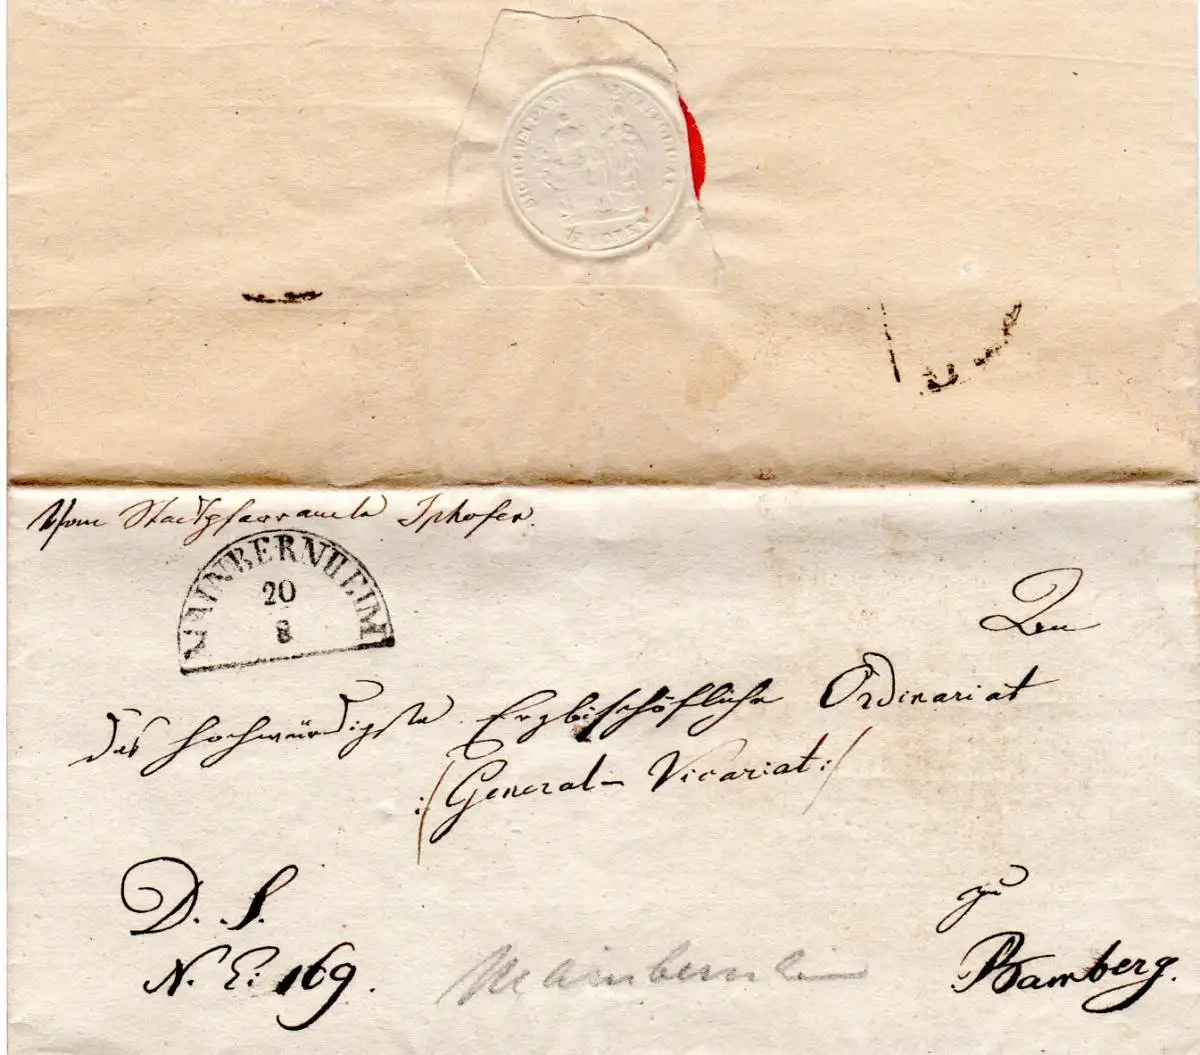 Vom Stadtpfarramte Iphofen.
MAINBERNHEIM
20
8
An
das Hochwürdigste Erzbischöfliche Ordinariat
:/General-Vicariat:/
D. S.
N. E: 169.
zu
Bamberg.
Mainbernheim